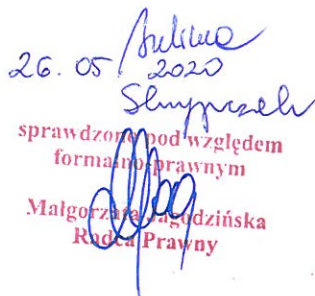 26.05 2020
sprawdzono pod względem
formalno-prawnym
Małgorzata Jagodzińska
Radca Prawny